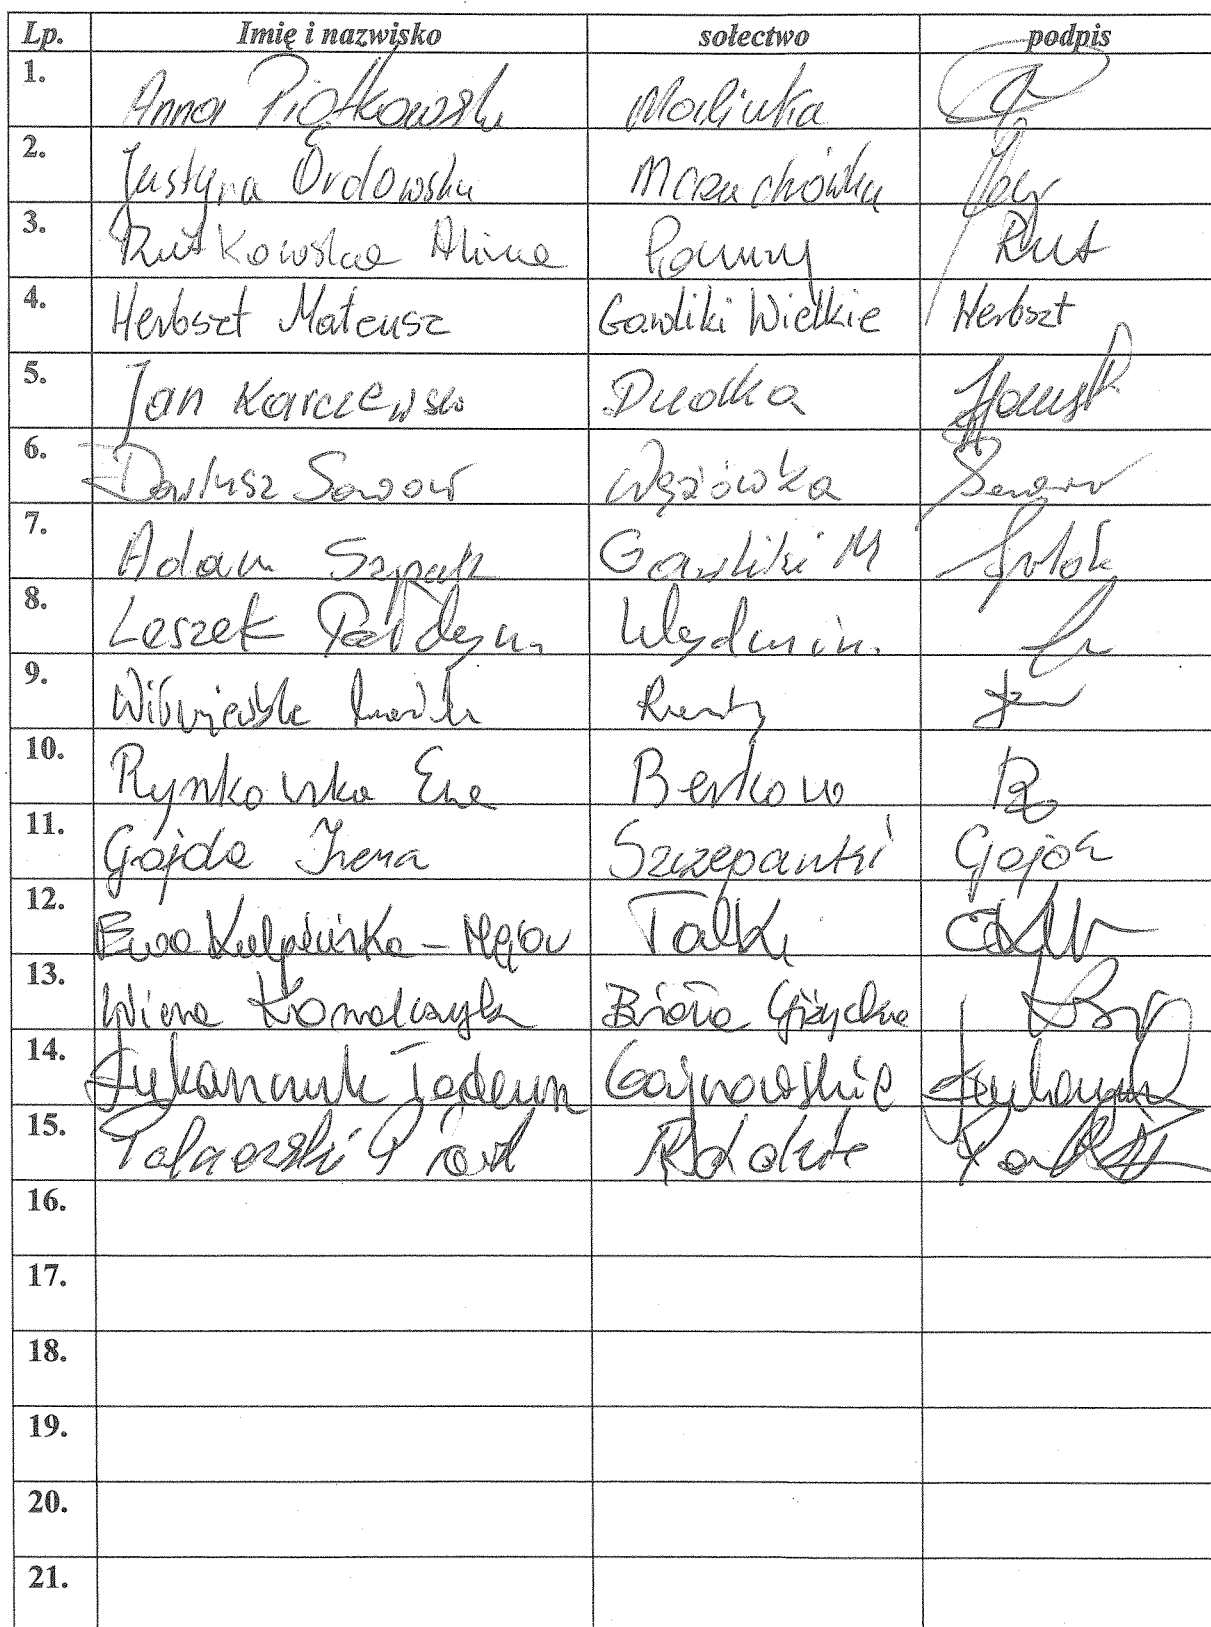 Lp. Imię i nazwisko sołectwo podpis
1. Anna Piątkowska Malinka
2. Justyna Ordowska Mazuchówka
3. Rutkowska Alina Pamry Rut
4. Herbszt Mateusz Gawliki Wielkie Herbszt
5. Jan Karczewski Dudka
6. Dariusz Wężówka
7. Adam Szpak Gawliki M
8. Leszek Wydminy
9. Ranty
10. Rynkowska Ewa Berkowo
11. Gajda Irena Szczepanki Gajda
12. Ewa Talki
13. Kowalczyk Biała Giżycka
14. Łukańczuk Tadeusz Gajrowskie
15. Piotr Radzie
16.
17.
18.
19.
20.
21.